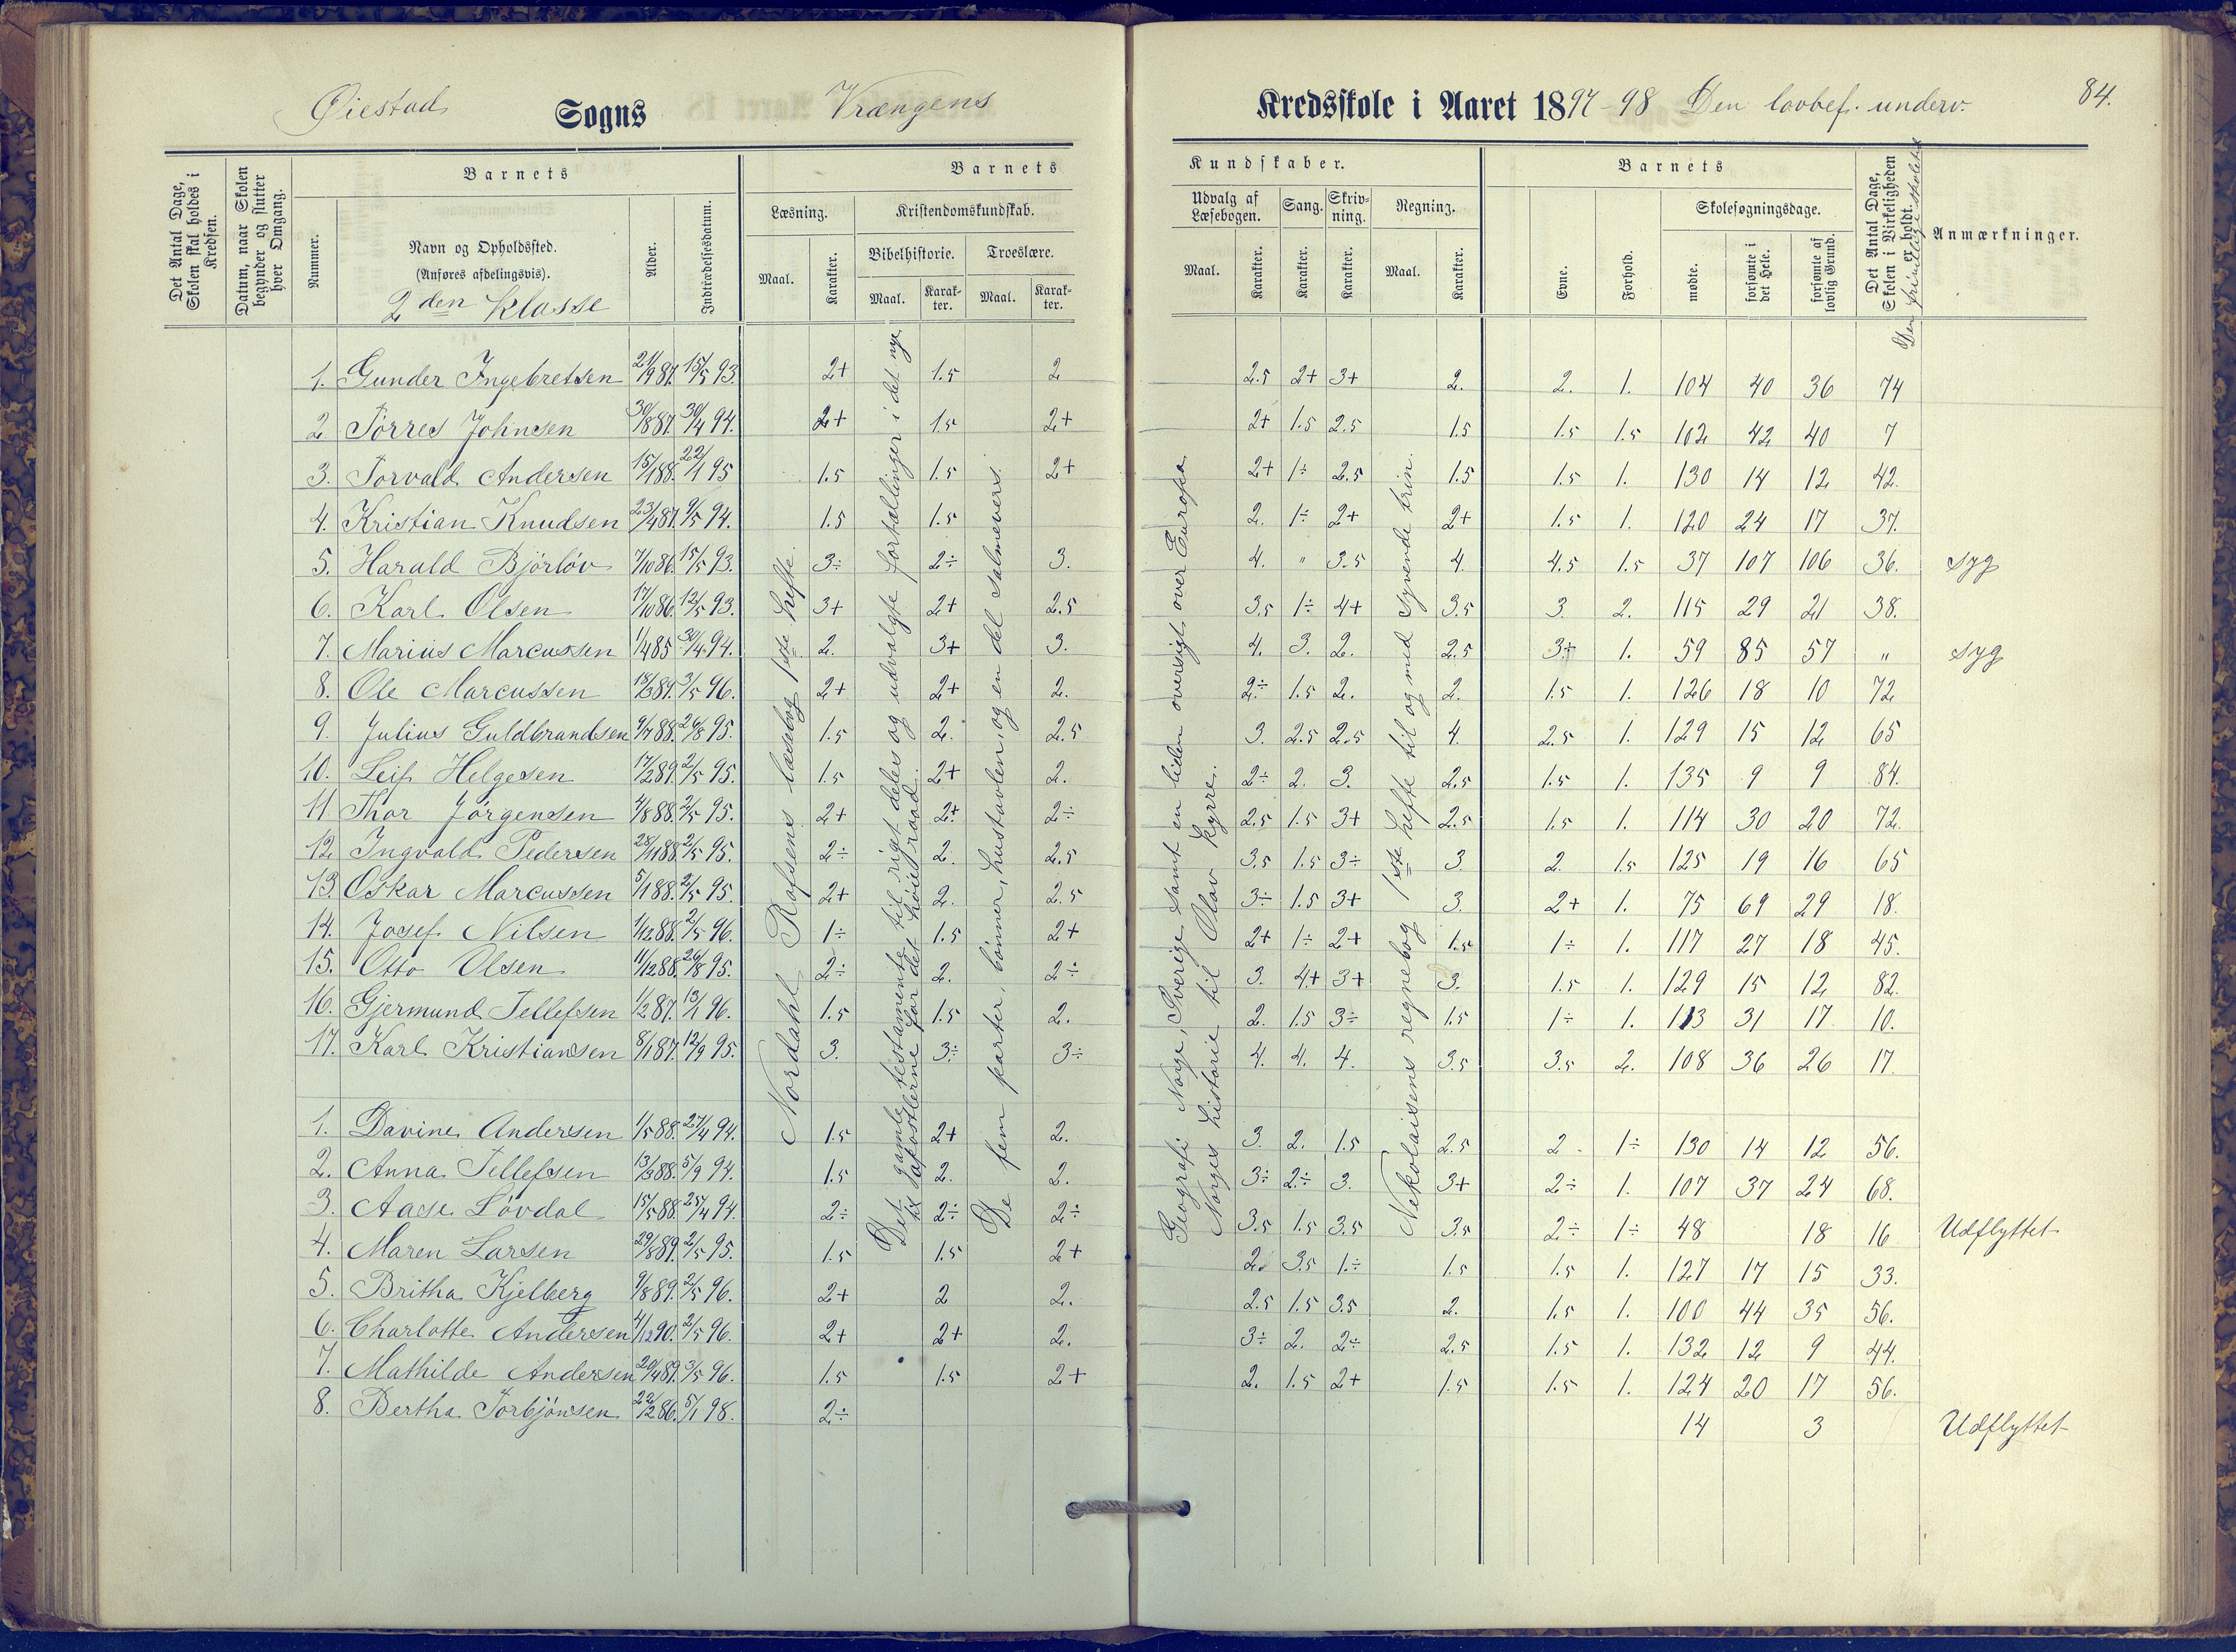 Øiestad Sogns Vrængens Kredsskole i Aaret 1897-98 Den lovbef. underv. 84.
Det Antal Dage, Skolen skal holdes i Kredsen.
Datum, naar Skolen begynder og slutter hver Omgang.
Barnets
Nummer.
Navn og Opholdssted.
(Anføres afdelingsvis).
2den Klasse
Alder.
Indtrædelsesdatum.
Barnets Kundskaber.
Læsning.
Maal. Karakter.
Kristendomskundskab.
Bibelhistorie. Troeslære.
Maal. Karakter. Maal. Karakter.
Udvalg af Læsebogen. Sang. Skrivning. Regning.
Maal. Karakter. Karakter. Karakter. Maal. Karakter.
Barnets
Evne. Forhold.
Skolesøgningsdage.
mødte. forsømte i det Hele. forsømte af lovlig Grund.
Det Antal Dage, Skolen i Virkeligheden er holdt.
Den frivillige skoletid
Anmærkninger.
Nordahl Rolfsens læsebog 1ste hefte.
Det gamle testamente til riget deles og udvalgte fortællinger i det nye
til apostlerne for det høie raad.
De fem parter, bønner, hustavlen, og en del salmevers.
Geografi Norge, Sverige samt en liden oversigt over Europa.
Norges historie til Olav Kyrre.
Nikolaisens regnebog 1ste hefte til og med syvende trin.
1. Gunder Ingebretsen 21/9 87. 15/5 93. 2+ 1.5 2 2.5 2+ 3+ 2. 2. 1. 104 40 36 74
2. Torres Johnsen 30/8 87. 30/4 94. 2+ 1.5 2+ 2+ 1.5 2.5 1.5 1.5 1.5 102 42 40 7
3. Torvald Andersen 15/1 88. 22/1 95 1.5 1.5 2+ 2+ 1÷ 2.5 1.5 1.5 1. 130 14 12 42.
4. Kristian Knudsen 23/4 87. 9/5 94. 1.5 1.5 2. 1÷ 2+ 2+ 1.5 1. 120 24 17 37.
5. Harald Bjørløv 7/10 86. 15/5 93. 3÷ 2÷ 3. 4. " 3.5 4. 4.5 1.5 37 107 106 36. syg
6. Karl Olsen 17/10 86. 12/5 93. 3+ 2+ 2.5 3.5 1÷ 4+ 3.5 3. 2. 115 29 21 38.
7. Marius Marcussen 1/4 85 30/4 94. 2. 3+ 3. 4. 3. 2. 2.5 3+ 1. 59 85 57 " syg
8. Ole Marcussen 18/3 89. 3/5 96. 2+ 2+ 2. 2÷ 1.5 2. 2. 1.5 1. 126 18 10 72
9. Julius Guldbrandsen 9/7 88. 26/8 95. 1.5 2. 2.5 3. 2.5 2.5 4. 2.5 1. 129 15 12 65
10. Leif Helgesen 17/2 89. 2/5 95. 1.5 2+ 2. 2÷ 2. 3. 2.5 1.5 1. 135 9 9 84.
11 Thor Jørgensen 4/8 88. 2/5 95. 2+ 2+ 2÷ 2.5 1.5 3+ 2.5 1.5 1. 114 30 20 72.
12. Ingvald Pedersen 28/11 88. 2/5 95. 2÷ 2. 2.5 3.5 1.5 3÷ 3 2. 1.5 125 19 16 65
13. Oskar Marcussen 5/1 88. 2/5 95. 2+ 2. 2.5 3÷ 1.5 3+ 3. 2+ 1. 75 69 29 18.
14. Josef Nilsen 1/12 88. 2/5 96. 1÷ 1.5 2+ 2+ 1÷ 2+ 1.5 1÷ 1. 117 27 18 45.
15. Otto Olsen 11/12 88. 26/8 95. 2÷ 2. 2÷ 3. 4+ 3+ 3. 1.5 1. 129 15 12 82.
16. Gjermund Tellefsen 1/2 87. 13/1 96. 1.5 1.5 2. 2. 1.5 3÷ 1.5 1÷ 1. 113 31 17 10.
17. Karl Kristiansen 8/1 87. 12/9 95. 3. 3÷ 3÷ 4. 4. 4. 3.5 3.5 2. 108 36 26 17.
1. Davine Andersen 1/5 88. 27/4 94. 1.5 2+ 2. 3. 2. 1.5 2.5 2 1÷ 130 14 12 56.
2. Anna Tellefsen 13/3 88. 5/9 94. 1.5 2. 2. 3÷ 2÷ 3. 3+ 2÷ 1. 107 37 24 68.
3. Aase Løvdal 15/5 88. 25/4 94. 2÷ 2÷ 2÷ 3.5 1.5 3.5 3.5 2÷ 1÷ 48 18 16 Udflyttet
4. Maren Larsen 29/8 89. 2/5 95. 1.5 1.5 2+ 2. 3.5 1÷ 1.5 1.5 1. 127 17 15 33.
5. Britha Kjelberg 9/8 89. 2/5 96. 2+ 2 2. 2.5 1.5 3.5 2. 1.5 1. 100 44 35 56.
6. Charlotte Andersen 4/12 90. 2/5 96. 2+ 2+ 2. 3÷ 2. 2÷ 2.5 1.5 1. 132 12 9 44.
7. Mathilde Andersen 20/4 89. 3/5 96. 1.5 1.5 2+ 2. 1.5 2+ 1.5 1.5 1. 124 20 17 56.
8. Bertha Torbjønsen 22/2 86. 5/1 98. 2÷ 14 3 Udflyttet